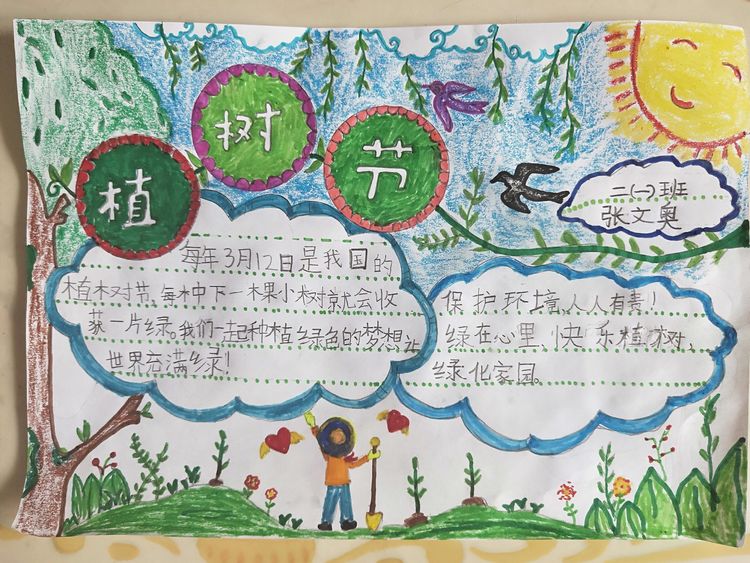 植树节
二(一)班
张文奥
每年3月12日是我国的
植树节,每种下一棵小树就会收
获一片绿。我们一起种植绿色的梦想,让
世界充满绿!
保护环境、人人有责!
绿在心里、快乐植树、
绿化家园。